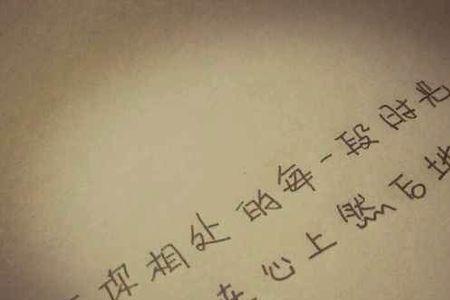 你相处的每一段时光
在心上然后地